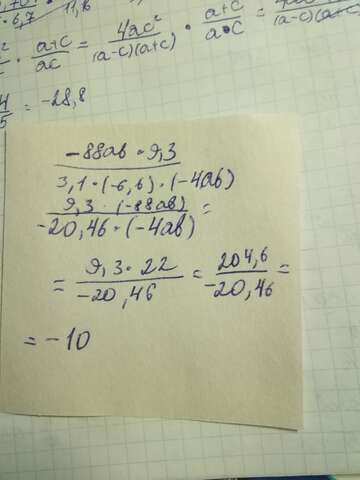 6,7 11,16
· a+c/ac = 4ac²/(a-c)(a+c) · a+c/a·c =
4/5 = -28,8
-88ab · 9,3
3,1 · (-6,6) · (-4ab)
9,3 · (-88ab) =
-20,46 · (-4ab)
= 9,3 · 22/-20,46 = 204,6/-20,46 =
= -10